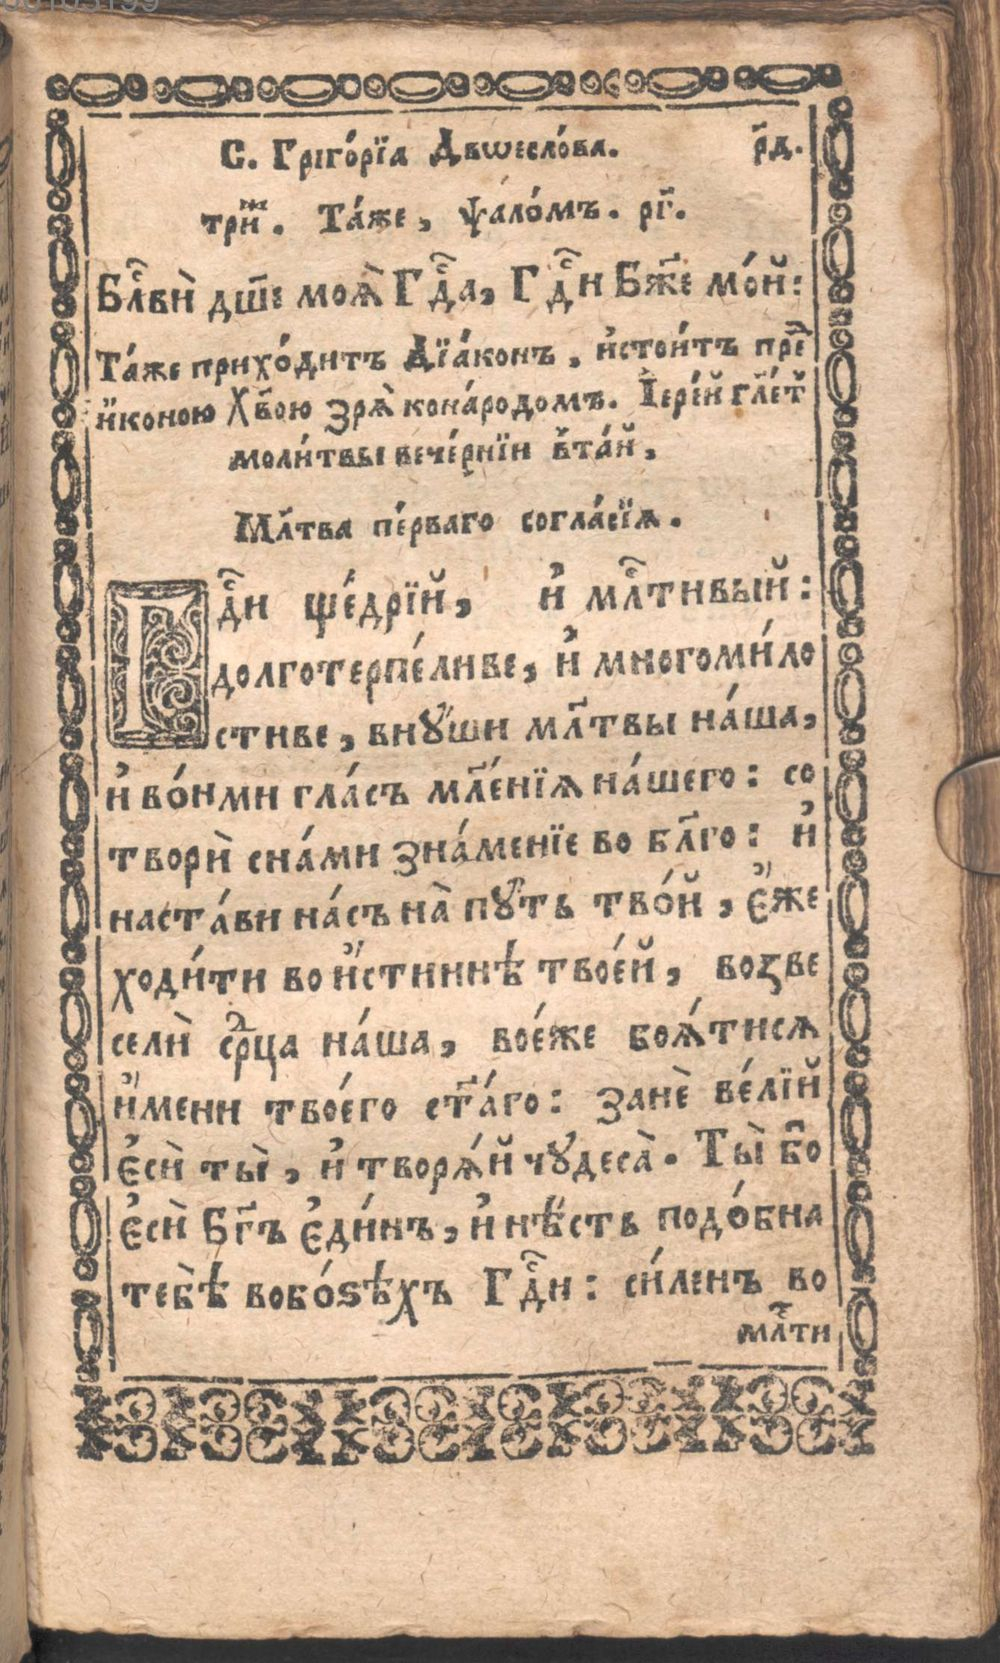 С. Григо́рїа Двѡесло́ва. р҃д.
три́ж. Та́же, ѱало́мъ. рг҃.
Бл҃ви̑ дш҃е моѧ̀ Гдⷭ҇а, Гдⷭ҇и Бж҃е мо́й:
Та́же прихо́дитъ Дїа́конъ, и҆стои́тъ преⷣ
и҆коною Хв҃ою зрѧ̀ кона́родомъ. Іере́й гл҃етъ
моли́твы вече́рнїи в̾та́й.
Мл҃тва пе́рваго согла́сїѧ.
Гдⷭ҇и ще́дрїй, и҆ млⷭ҇тивый:
долготерпе́ливе, и҆ многоми́ло
стиве, внꙋ́ши мл҃твы на́ша,
и҆ во́нми гла́съ мл҃е́нїѧ на́шего: со
твори̑ сна́ми зна́менїе во бл҃го: и҆
наста́ви на́съ на̀ пꙋ́ть тво́й, є҆́же
ходи́ти во и҆́стиннѣ твое́й, возве
сели̑ срⷣца на́ша, вое́же боѧ́тисѧ
и҆́мени твоего̀ ст҃а́го: занѐ ве́лїй
є҆си̑ ты̀, и҆ творѧ́й чꙋдеса̀. Ты̀ бо
є҆си̑ Бг҃ъ є҆ди́нъ, и҆ нѣ́сть подо́бна
тебѣ̀ вобо́ѕѣхъ Гдⷭ҇и: си́ленъ во
млⷭ҇ти